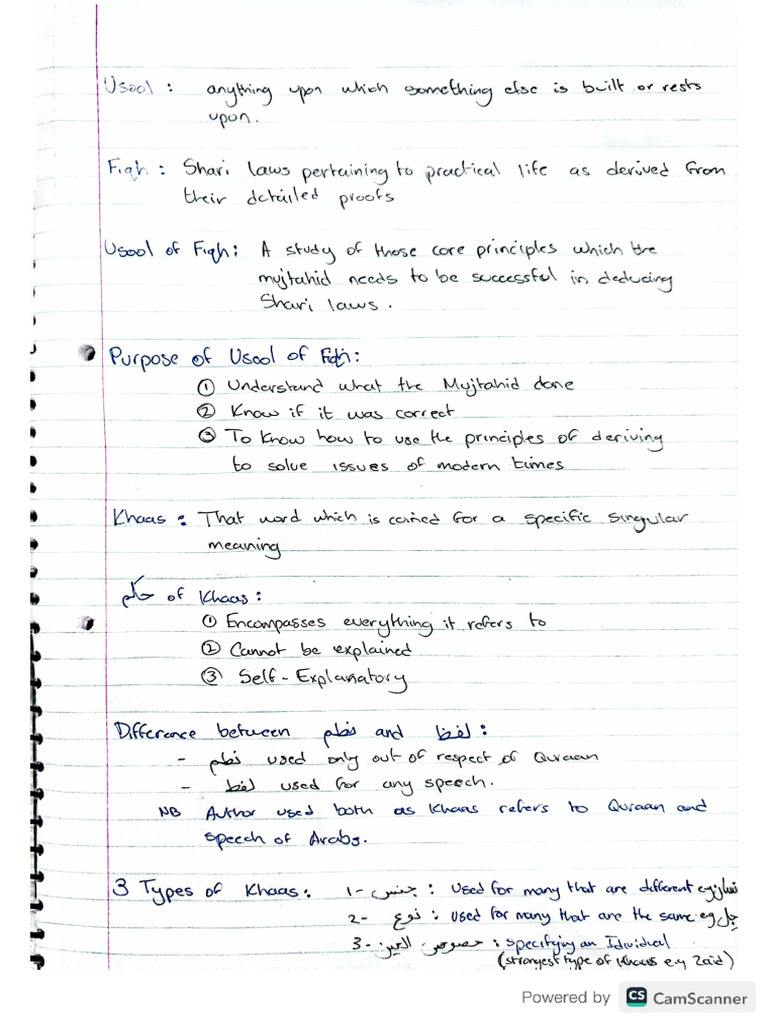 Usool : anything upon which something else is built or rests
upon.
Fiqh : Shari laws pertaining to practical life as derived from
their detailed proofs
Usool of Fiqh : A study of those core principles which the
mujtahid needs to be successful in deducing
Shari laws .
Purpose of Usool of Fiqh :
① Understand what the Mujtahid done
② Know if it was correct
③ To know how to use the principles of deriving
to solve issues of modern times
Khaas : That word which is coined for a specific singular
meaning
حكم of Khaas :
① Encompasses everything it refers to
② Cannot be explained
③ Self-Explanatory
Difference between نظم and لفظ :
- نظم used only out of respect of Quraan
- لفظ used for any speech.
NB Author used both as Khaas refers to Quraan and
speech of Arabs.
3 Types of Khaas : 1- جنس : Used for many that are different eg انسان
2- نوع : used for many that are the same eg رجل
3- خصوص العين : specifying an Individual
(strongest type of Khaas e.g Zaid)
Powered by CS CamScanner